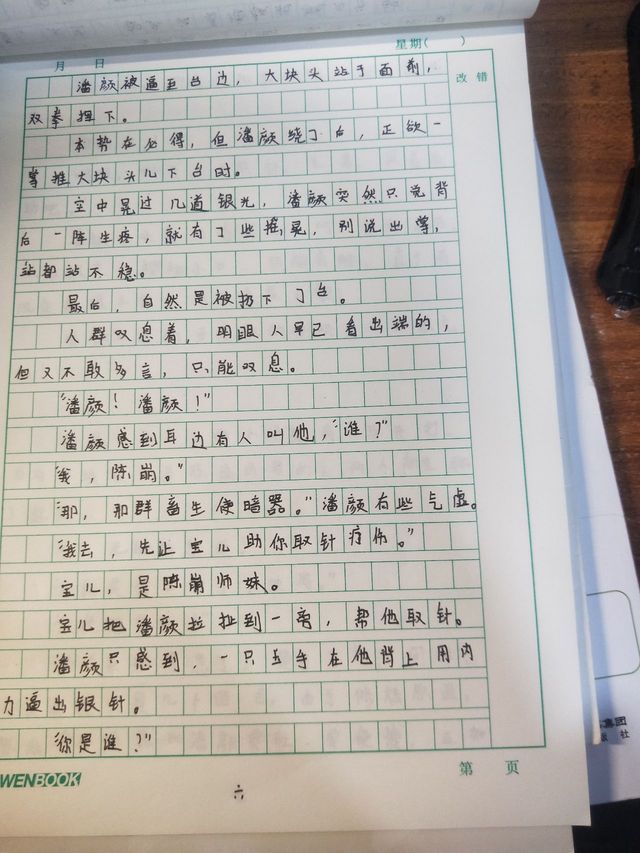 月 日 星期( )
改错
潘颜被逼至台边，大块头站于面前，
双拳捏下。
本势在必得，但潘颜绕了后，正欲一
掌推大块头儿下台时。
空中晃过几道银光，潘颜突然只觉背
后一阵生疼，就有了些摇晃，别说出掌，
站都站不稳。
最后，自然是被扔下了台。
人群叹息着，明眼人早已看出端的，
但又不敢多言，只能叹息。
"潘颜！潘颜！"
潘颜感到耳边有人叫他，"谁？"
"我，陈崩。"
"那，那群畜生使暗器。"潘颜有些气虚。
"我去，先让宝儿助你取针疗伤。"
宝儿，是陈崩师妹。
宝儿把潘颜拉扯到一旁，帮他取针。
潘颜只感到，一只玉手在他背上用内
力逼出银针。
"你是谁？"
WENBOOK
第 页
六
集团
社